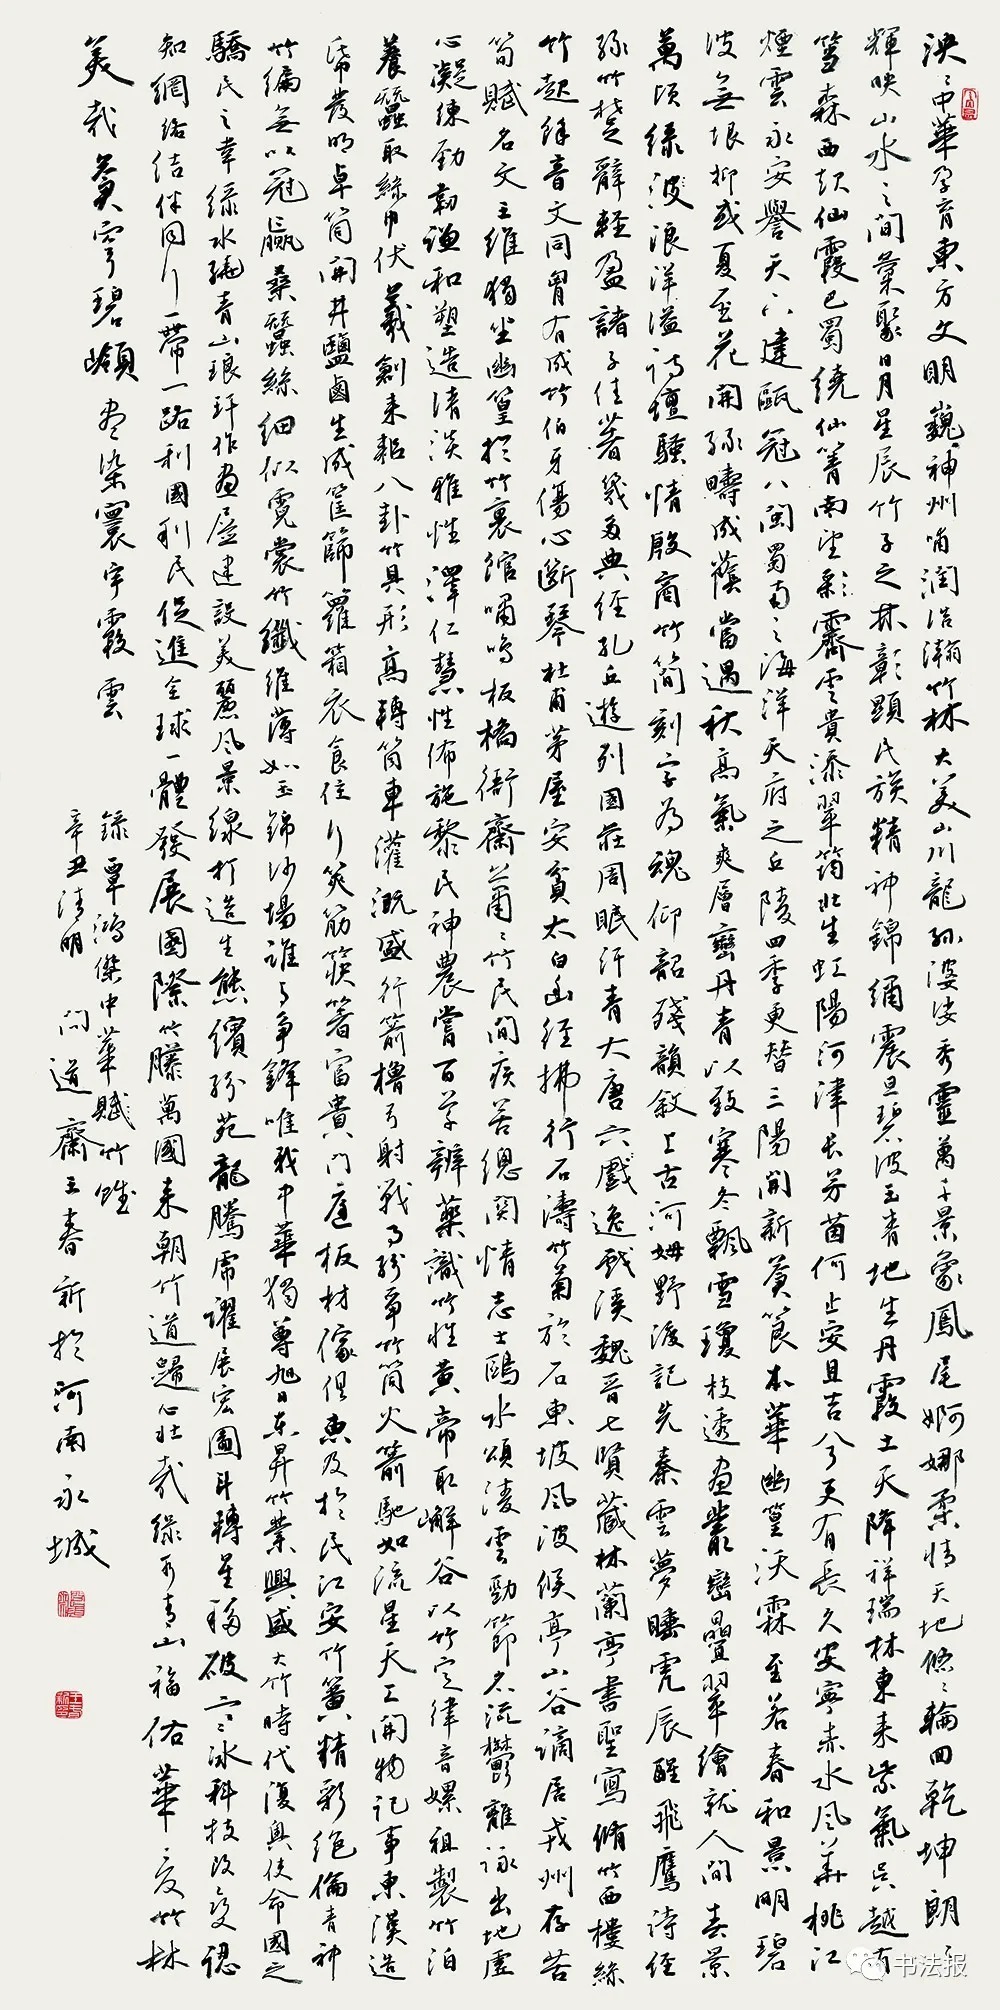 泱泱中華孕育東方文明巍巍神州喃潤浩瀚竹林大美山川龍孫婆娑秀靈萬千景象鳳尾婀娜柔情天地悠悠輪回乾坤朗朗
輝映山水之間彙聚日月星辰竹子之林彰顯民族精神錦綉震旦碧波玉青地生丹霞土天降祥瑞林東来紫氣吴越有
篁森西起仙霞巴蜀繞仙箐南望彩霽雲貴添翠筠壯生虹陽河津長芳茵何止安且吉兮更有長久安寧赤水風華桃江
煙雲永安譽天下建甌冠八閩蜀南之海洋天府之丘陵四季更替三陽開新蒼筤本華幽篁沃霖至若春和景明碧
波無垠抑或夏至花開綠疇成蔭當遇秋高氣爽層巒丹青以致寒冬飄雪瓊枝透畫叢巒疊翠繪就人間美景
萬頃綠波浪洋溢詩壇騷情殷商竹簡刻字為魂仰韶殘韻敘上古河姆野渡記先秦雲夢睡虎辰醒飛鷹詩经
緑竹楚辭輕盈諸子佳著幾多典經孔丘遊列國莊周眠汗青大唐六戲逸我溪魏晋七賢藏林蘭亭書聖寫脩竹西樓絲
竹起餘音文同胃有成竹伯牙傷心斷琴杜甫茅屋安貧太白幽经拂行石濤竹菊於石東坡風波候亭山谷謫居戎州存苦
筍賦名文王維獨坐幽篁於竹裏館嘯鳴板橋衙齋蕭蕭竹民間疾苦總関情志士鷗水頌凌雲勁節名流鬱離詠出地虚
心凝練勁韌謙和塑造清淡雅性澤仁慧性佈施黎民神農嘗百草辨藥識竹性黄帝取嶰谷以竹定律音嫘祖製竹泊
養蠶取絲巾伏羲創来耜八卦竹具形高轉筒車灌溉盛行箭櫓弓射戰事紛爭竹筒火箭馳如流星天工開物記事東漢造
帋發明卓筒開井鹽鹵生成筐篩籮箱衣食住行筅筯筷箸富貴門庭板材傢俱惠及於民江安竹簧精彩絕倫青神
竹編無以冠贏桑蠶絲細似霓裳竹纖維薄如玉錦沙場誰與争鋒唯我中華獨尊旭日東昇竹業興盛大竹時代復興使命國之
驕民之幸綠水繞青山琅玕作畫屏建設美麗風景線打造生態繽紛苑龍騰虎躍展宏圖斗轉星移破堅冰科技改變認
知網络结伴同行一帶一路利國利民促進全球一體發展國際竹藤萬國来朝竹道歸心壯哉綠水青山福佑華夏竹林
美哉蒼穹碧嶺盡染寰宇霞雲
録覃鴻傑中華賦竹雖
辛丑清明 問道齋王春新於河南永城
书法报